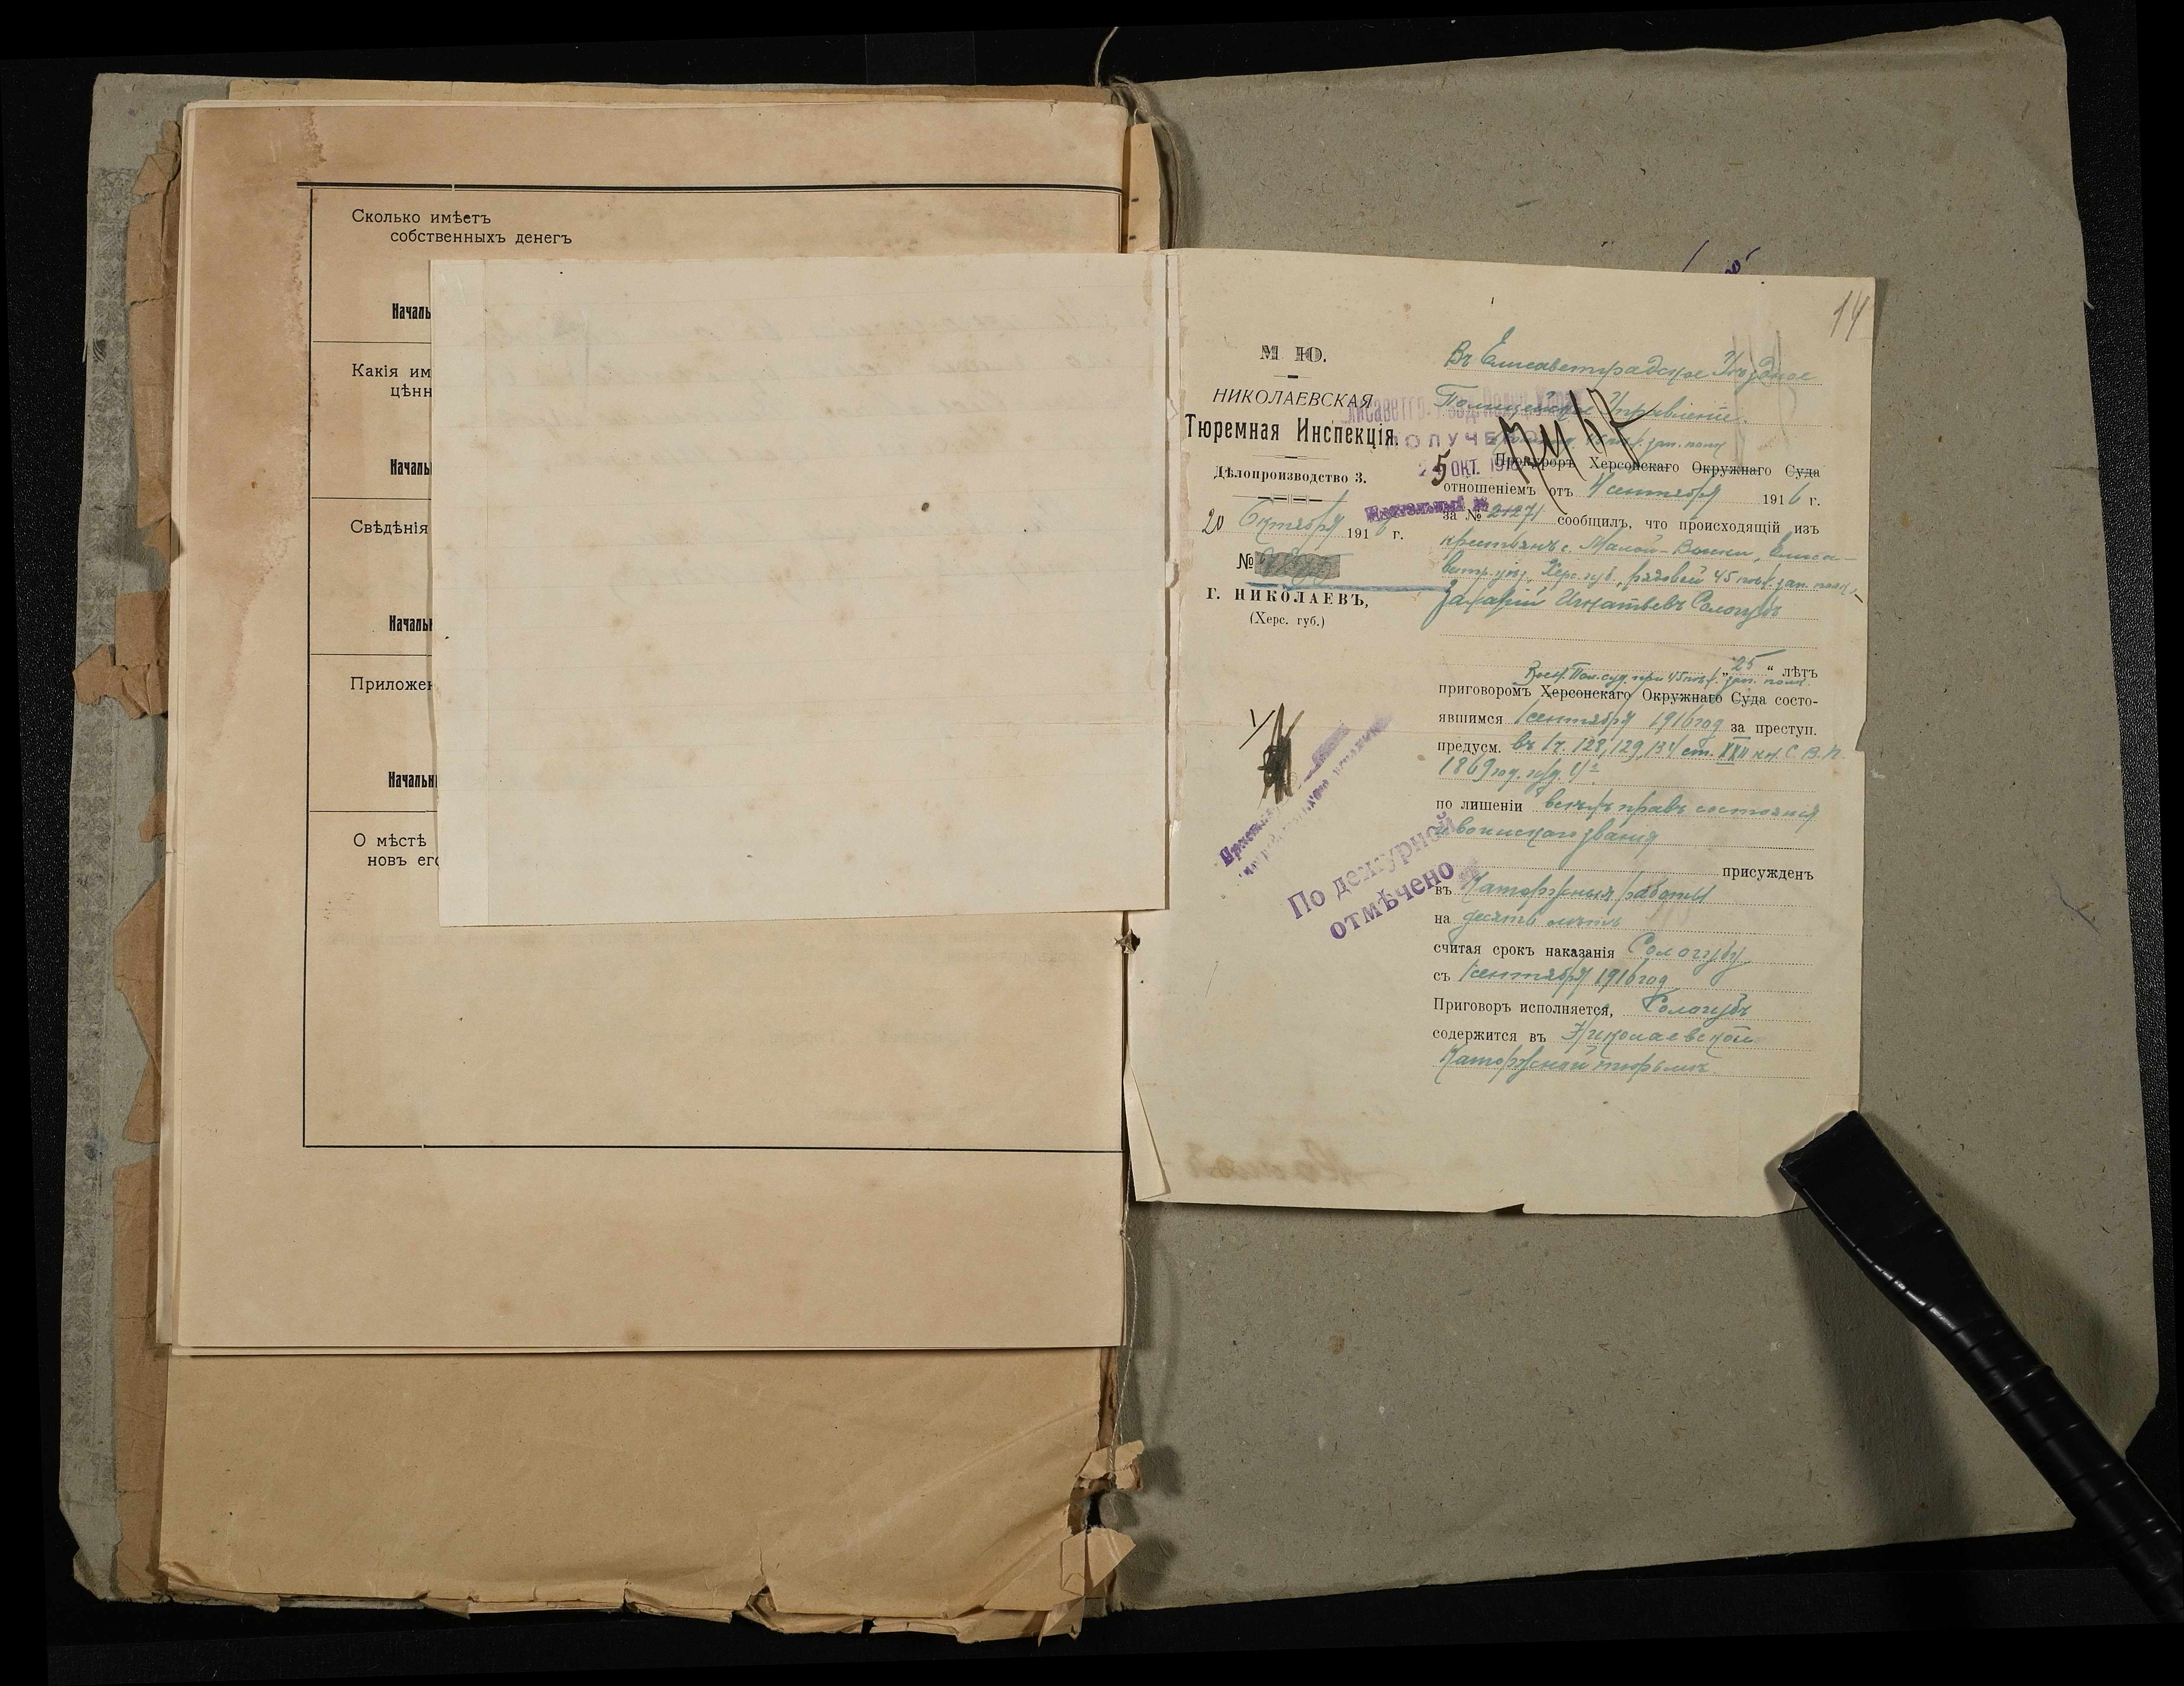 Сколько имѣетъ
собственныхъ денегъ
Началь
Какія им
цѣнн
Началь
Свѣдѣнія
Началь
Приложен
Началь
О мѣстѣ
новъ его
14
М. Ю.
НИКОЛАЕВСКАЯ
Тюремная Инспекція.
Дѣлопроизводство 3.
20 Октября 1916 г.
№
Г. НИКОЛАЕВЪ,
(Херс. губ.)
Въ Елисаветградское Уѣздное
Полицейское Управленіе.
ПОЛУЧЕНО
25 ОКТ. 1916
45 пѣх. зап. полка
Прокуроръ Херсонскаго Окружнаго Суда
отношеніемъ отъ 4 сентября 1916 г.
за № 21271 сообщилъ, что происходящій изъ
крестьянъ с. Малой-Виски, Елиса-
ветгр. уѣз., Херс. губ., рядовой 45 пѣх. зап. полка
Захарій Игнатьевъ Сологубъ
„25“ лѣтъ
Пол. суд. при 45 пѣх. зап. полк.
приговоромъ Херсонскаго Окружнаго Суда состо-
явшимся 1 сентября 1916 год за преступ.
предусм. въ 1 ч. 128, 129, 134 ст. XXII кн. С. В. П.
1869 год. изд. 4ᵉ
по лишеніи всѣхъ правъ состоянія
и воинскаго званія
присужденъ
въ Каторжныя работы
на десять лѣтъ
считая срокъ наказанія Сологубу
съ 1 сентября 1916 год
Приговоръ исполняется, Сологубъ
содержится въ Николаевской
Каторжной тюрьмѣ.
По дежурной
отмѣчено